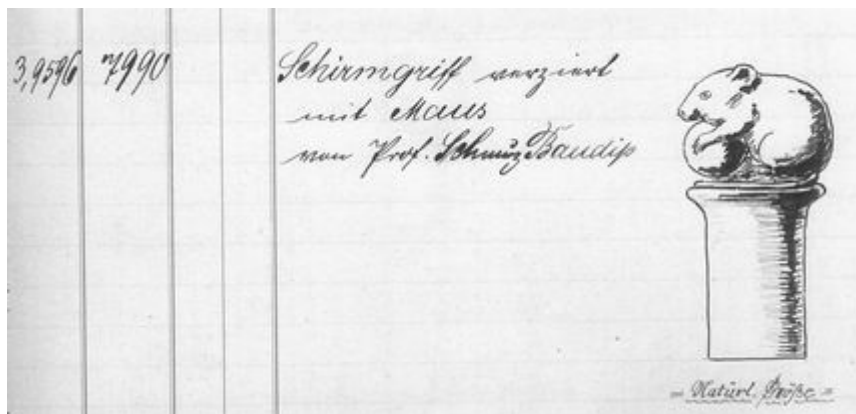 3,9596 7990 Schirmgriff verziert
mit Maus
von Prof. Schmuz Baudiß
= Natürl. Größe =